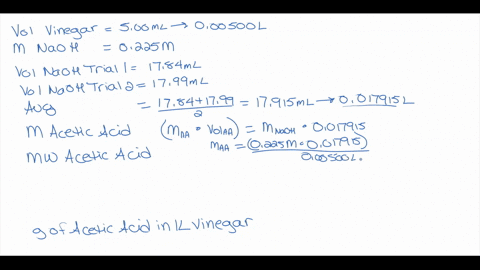 Vol Vinegar = 5.00mL → 0.00500L
M NaOH = 0.225M
Vol NaOH Trial 1 = 17.84mL
Vol NaOH Trial 2 = 17.99mL
Avg = 17.84+17.99/2 = 17.915mL → 0.017915L
M Acetic Acid (MAA • VolAA) = MNaOH • 0.017915
MW Acetic Acid MAA = (0.225M • 0.017915)/0.00500L
g of Acetic Acid in 1L Vinegar